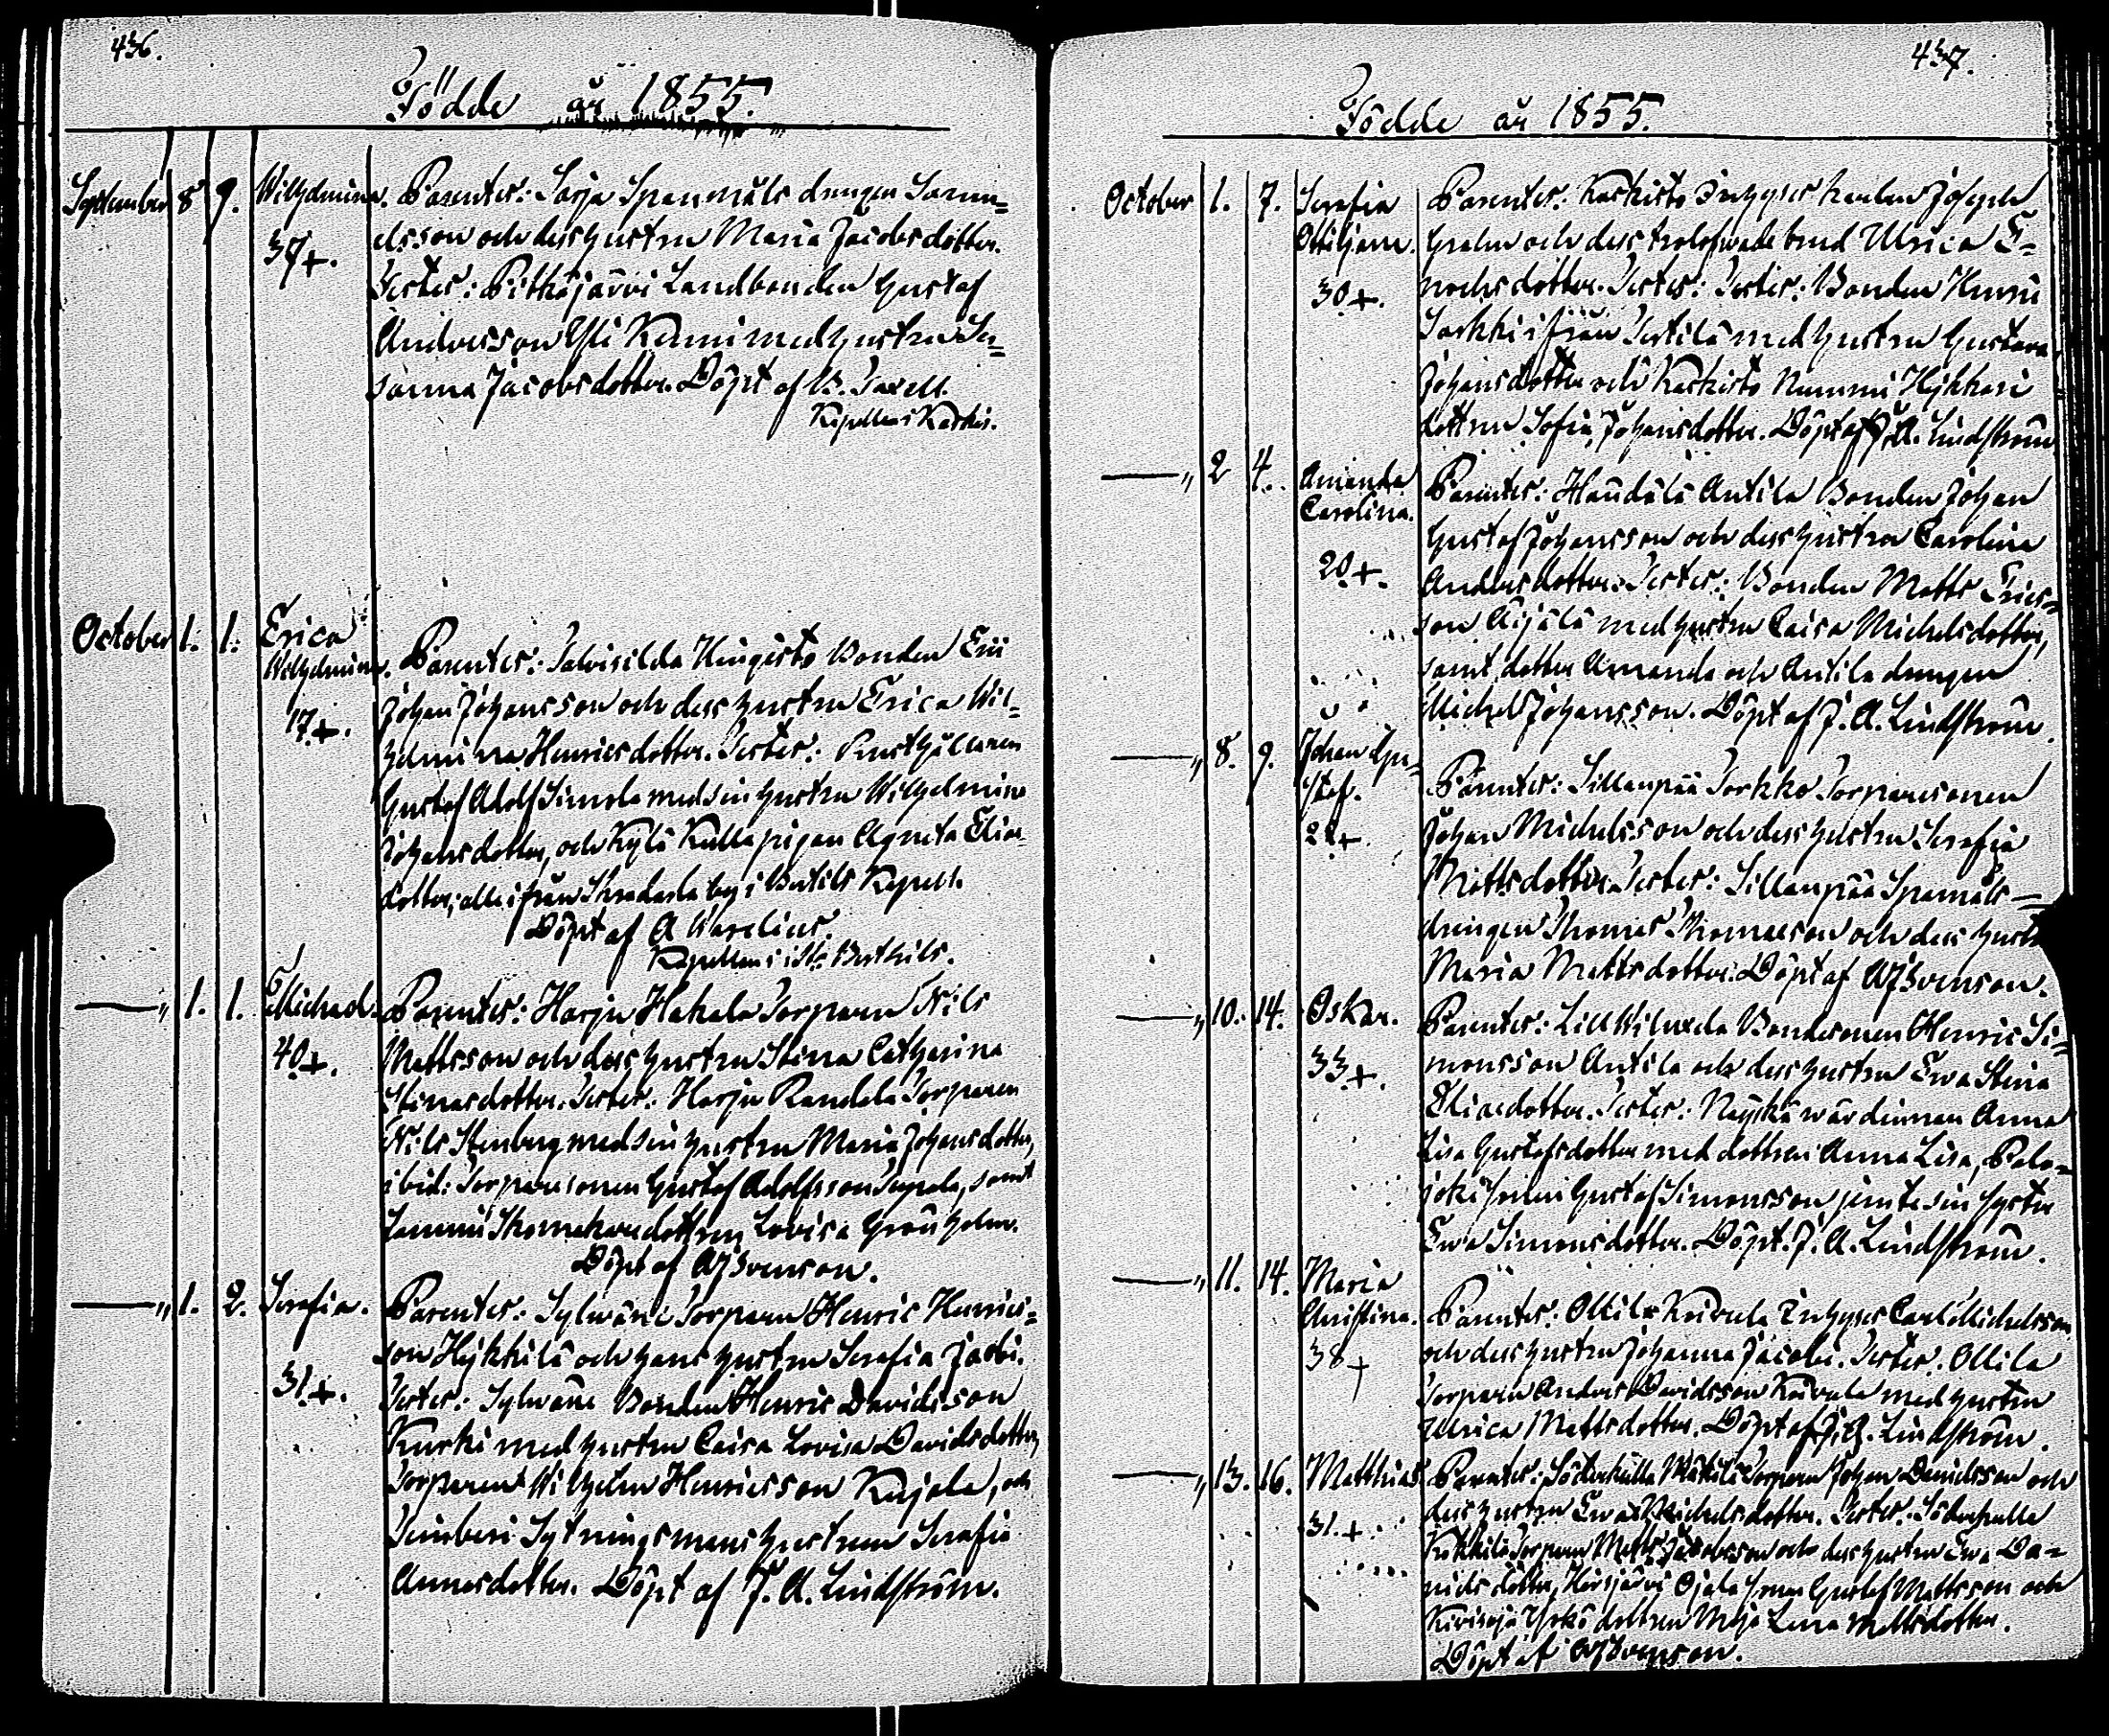 436.
Födde år 1855.
September 8 9. Wilhelmina. Parenter: Sarja Spanmåls drengen Samu-
37+. elsson och dess hustru Maria Jacobsdotter.
Tester: Pitkäjärvi Landbonden Gustaf
Andersson Yli Kenni med hustru Su-
sanna Jacobsdotter. Döpt af B. Taxell.
Kapellan i Karkis.
October 1. 1. Erica
Wilhelmina. Parenter: Bonden Eric
17+. Johan Johansson och dess hustru Erica Wil-
helmina Henricsdotter. Tester: Rusthållaren
Gustaf Adolf Simola med sin hustru Wilhelmina
Johansdotter, och Kylä Kulla pigan Agneta Elias-
dotter, alla ifrån by i Bertils Kapell.
Döpt af A Warelius.
Kapellan i S:t Berthils.
—„ 1. 1. Michael. Parenter: Harju Hakala Torparen Nils
40+. Mattsson och dess hustru Stina Catharina
Stinasdotter. Tester: Harju Randala Torparen
Nils Stenberg med sin hustru Maria Johansdotter,
ibid: Torparesonen Gustaf Adolfsson Seppälä, samt
Skomakaredottren Lovisa Grönholm.
Döpt af AJSvenson.
—„ 1. 2. Serafia. Parenter: Sylwäne Torparen Henric Henrics-
son Hykkilä och hans hustru Serafia Jacobi.
31+. Tester: Sylwäne Bonden Henric Davidsson
Kurki med hustru Caisa Lovisa Davidsdotter,
Torparen Wilhelm Henricsson Kujala, och
Sytningsmans hustrun Serafia
Annasdotter. Döpt af J. A. Lindström.
437.
Födde år 1855.
October 1. 7. Serafia Parenter: Karkisto Inhyses karlen Joseph
Ottiljana. Grahn och dess trolofwade brud Ulrica E-
30+. nochsdotter. Tester: Tester: Bonden Henric
Sarkki ifrån Tertilä med hustru Gustava
Johansdotter och Karkisto Nummi Hykkeri
dottren Sofia Johansdotter. Döpt af J. A. Lindström
—„ 2 4. Amanda Parenter: Haudala Antila Bonden Johan
Carolina. Gustaf Johansson och dess hustru Carolina
20+. Andersdotter. Tester: Bonden Matts Erics-
son Äijälä med hustru Caisa Michelsdotter,
samt dotter Amanda och Antila drengen
Michel Johansson. Döpt af J. A. Lindström.
—„ 8. 9. Johan Gu-
staf. Parenter: Sillanpää Torkko Torparesonen
22+. Johan Michelsson och dess hustru Serafia
Mattsdotter. Tester: Sillanpää Spanmåls-
drengen Thomas Thomasson och dess hustru
Maria Mattsdotter. Döpt af AJSvenson.
—„ 10. 14. Oskar. Parenter: Lill Wilunda Bondesonen Henric Si-
33+. monsson Antila och dess hustru Ewa Stina
Eliaedotter. Tester: Näyskä wärdinnan Anna
Lisa Gustafsdotter med dottren Anna Lisa, Palo-
joki sonen Gustaf Simonsson jemte sin syster
Ewa Simonsdotter. Döpt. J. A. Lindström.
—„ 11. 14. Maria
Christina. Parenter: Ollila Koivula Inhyses Carl Michelsson
38+ och dess hustru Johanna Jacobi. Tester. Ollila
Torparen Anders Davidsson Koivula med hustru
Ulrica Mattsdotter. Döpt af J. A. Lindström.
—„ 13. 16. Matthias Parenter: Söderkulla Mäkilä Torparen Johan Danielsson och
31.+ dess hustru Ewa Michelsdotter. Tester: Söderkulla
Torparen Matts Jacobsson och dess hustru Ewa Da-
nidsdotter, Hirsjärvi Ojala sonen Gustaf Mattsson och
Kivioja Yrkö dottren Maja Lena Mattsdotter.
Döpt af AJSvenson.